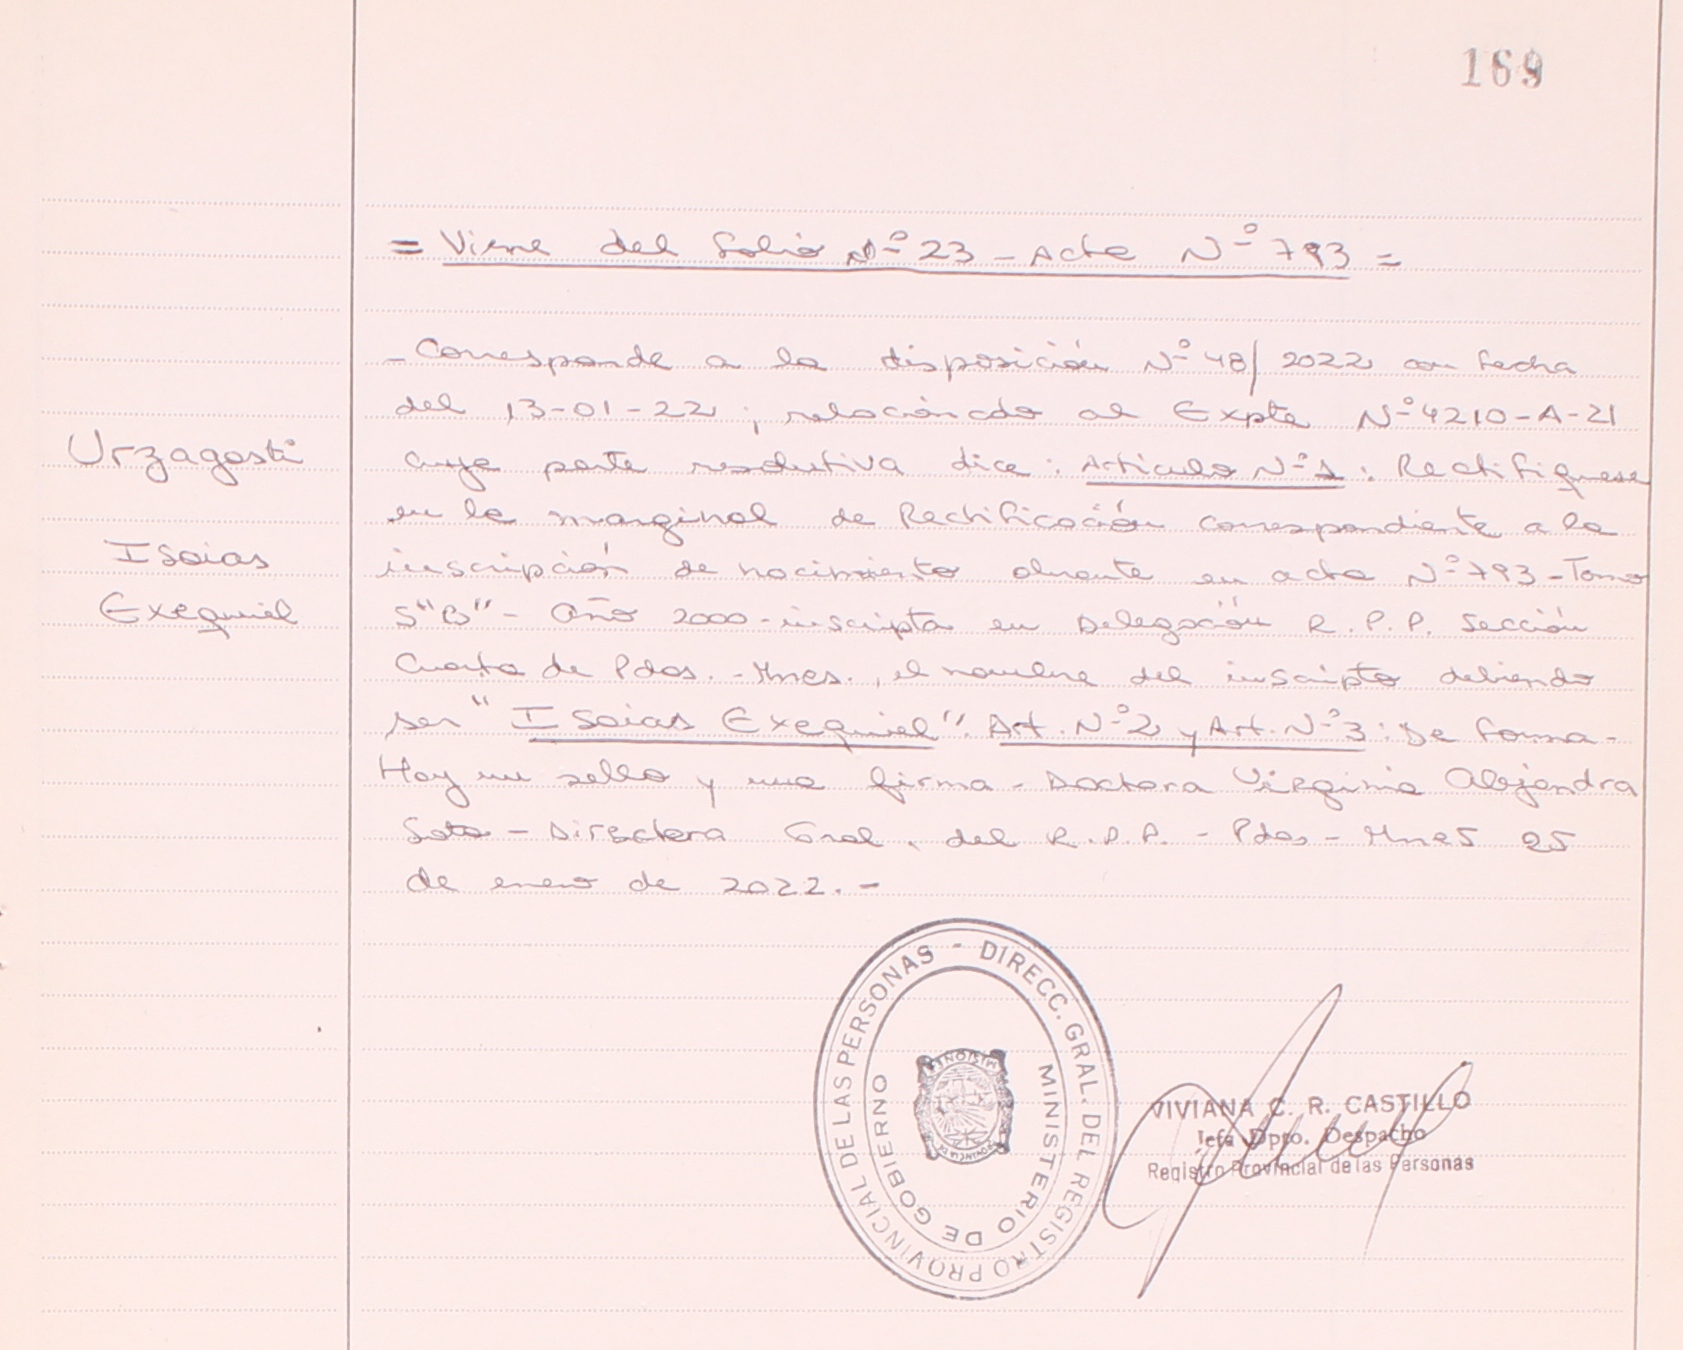 169
= Viene del folio Nº 23 - Acta Nº 793 =
- Corresponde a la disposición Nº 48/2022 con fecha
del 13-01-22, relacionado al Expte Nº 4210-A-21
Urzagasti
cuya parte resolutiva dice: Articulo Nº1: Rectifiquese
en la marginal de Rectificación correspondiente a la
Isaias
inscripción de nacimiento obrante en acta Nº 793 - Tomo
Exequiel
5"B" - Año 2000 - inscripta en Delegación R.P.P. Sección
Cuarta de Pdas. - Mnes., el nombre del inscripto debiendo
ser "Isaias Exequiel". Art. Nº2 y Art. Nº3: De forma -
Hay un sello y una firma - Doctora Virginia Alejandra
Soto - Directora Gral. del R.P.P. - Pdas - Mnes 25
de enero de 2022. -
DIRECC. GRAL. DEL REGISTRO PROVINCIAL DE LAS PERSONAS -
MINISTERIO DE GOBIERNO
VIVIANA C. R. CASTILLO
Jefa Dpto. Despacho
Registro Provincial de las Personas